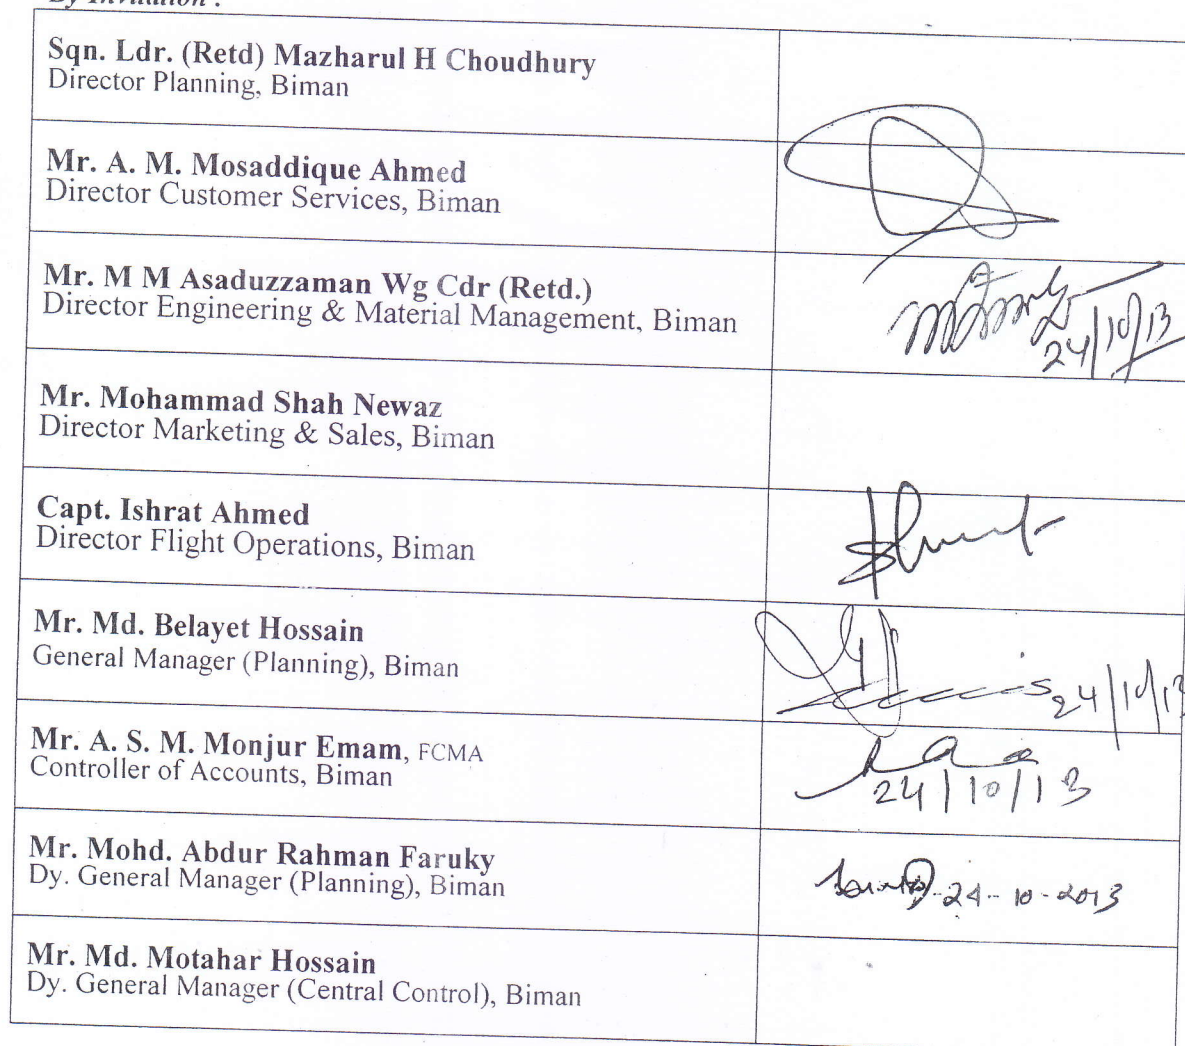 By Invitation :
Sqn. Ldr. (Retd) Mazharul H Choudhury
Director Planning, Biman
Mr. A. M. Mosaddique Ahmed
Director Customer Services, Biman
Mr. M M Asaduzzaman Wg Cdr (Retd.)
Director Engineering & Material Management, Biman
24/10/13
Mr. Mohammad Shah Newaz
Director Marketing & Sales, Biman
Capt. Ishrat Ahmed
Director Flight Operations, Biman
Mr. Md. Belayet Hossain
General Manager (Planning), Biman
24/10/13
Mr. A. S. M. Monjur Emam, FCMA
Controller of Accounts, Biman
24/10/13
Mr. Mohd. Abdur Rahman Faruky
Dy. General Manager (Planning), Biman
24-10-2013
Mr. Md. Motahar Hossain
Dy. General Manager (Central Control), Biman